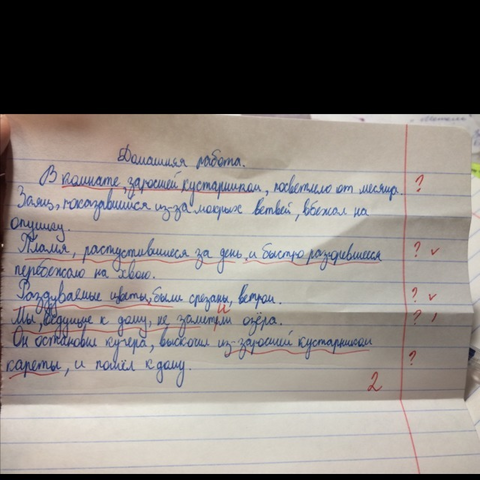 Домашняя работа.
В комнате, заросшей кустарником, посветлело от месяца. ?
Заяц, показавшийся из-за мокрых ветвей, вбежал на
опушку.
Пламя, распустившиеся за день, и быстро разгоревшееся ? v
перебежало на хвою.
Раздуваемые цветы, были срезаны, ветром. ? v
Мы, ведущие к дому, не заметили озера. ?
Он остановил кучера, выскочил из заросшей кустарником
кареты, и пошёл к дому. ?
2